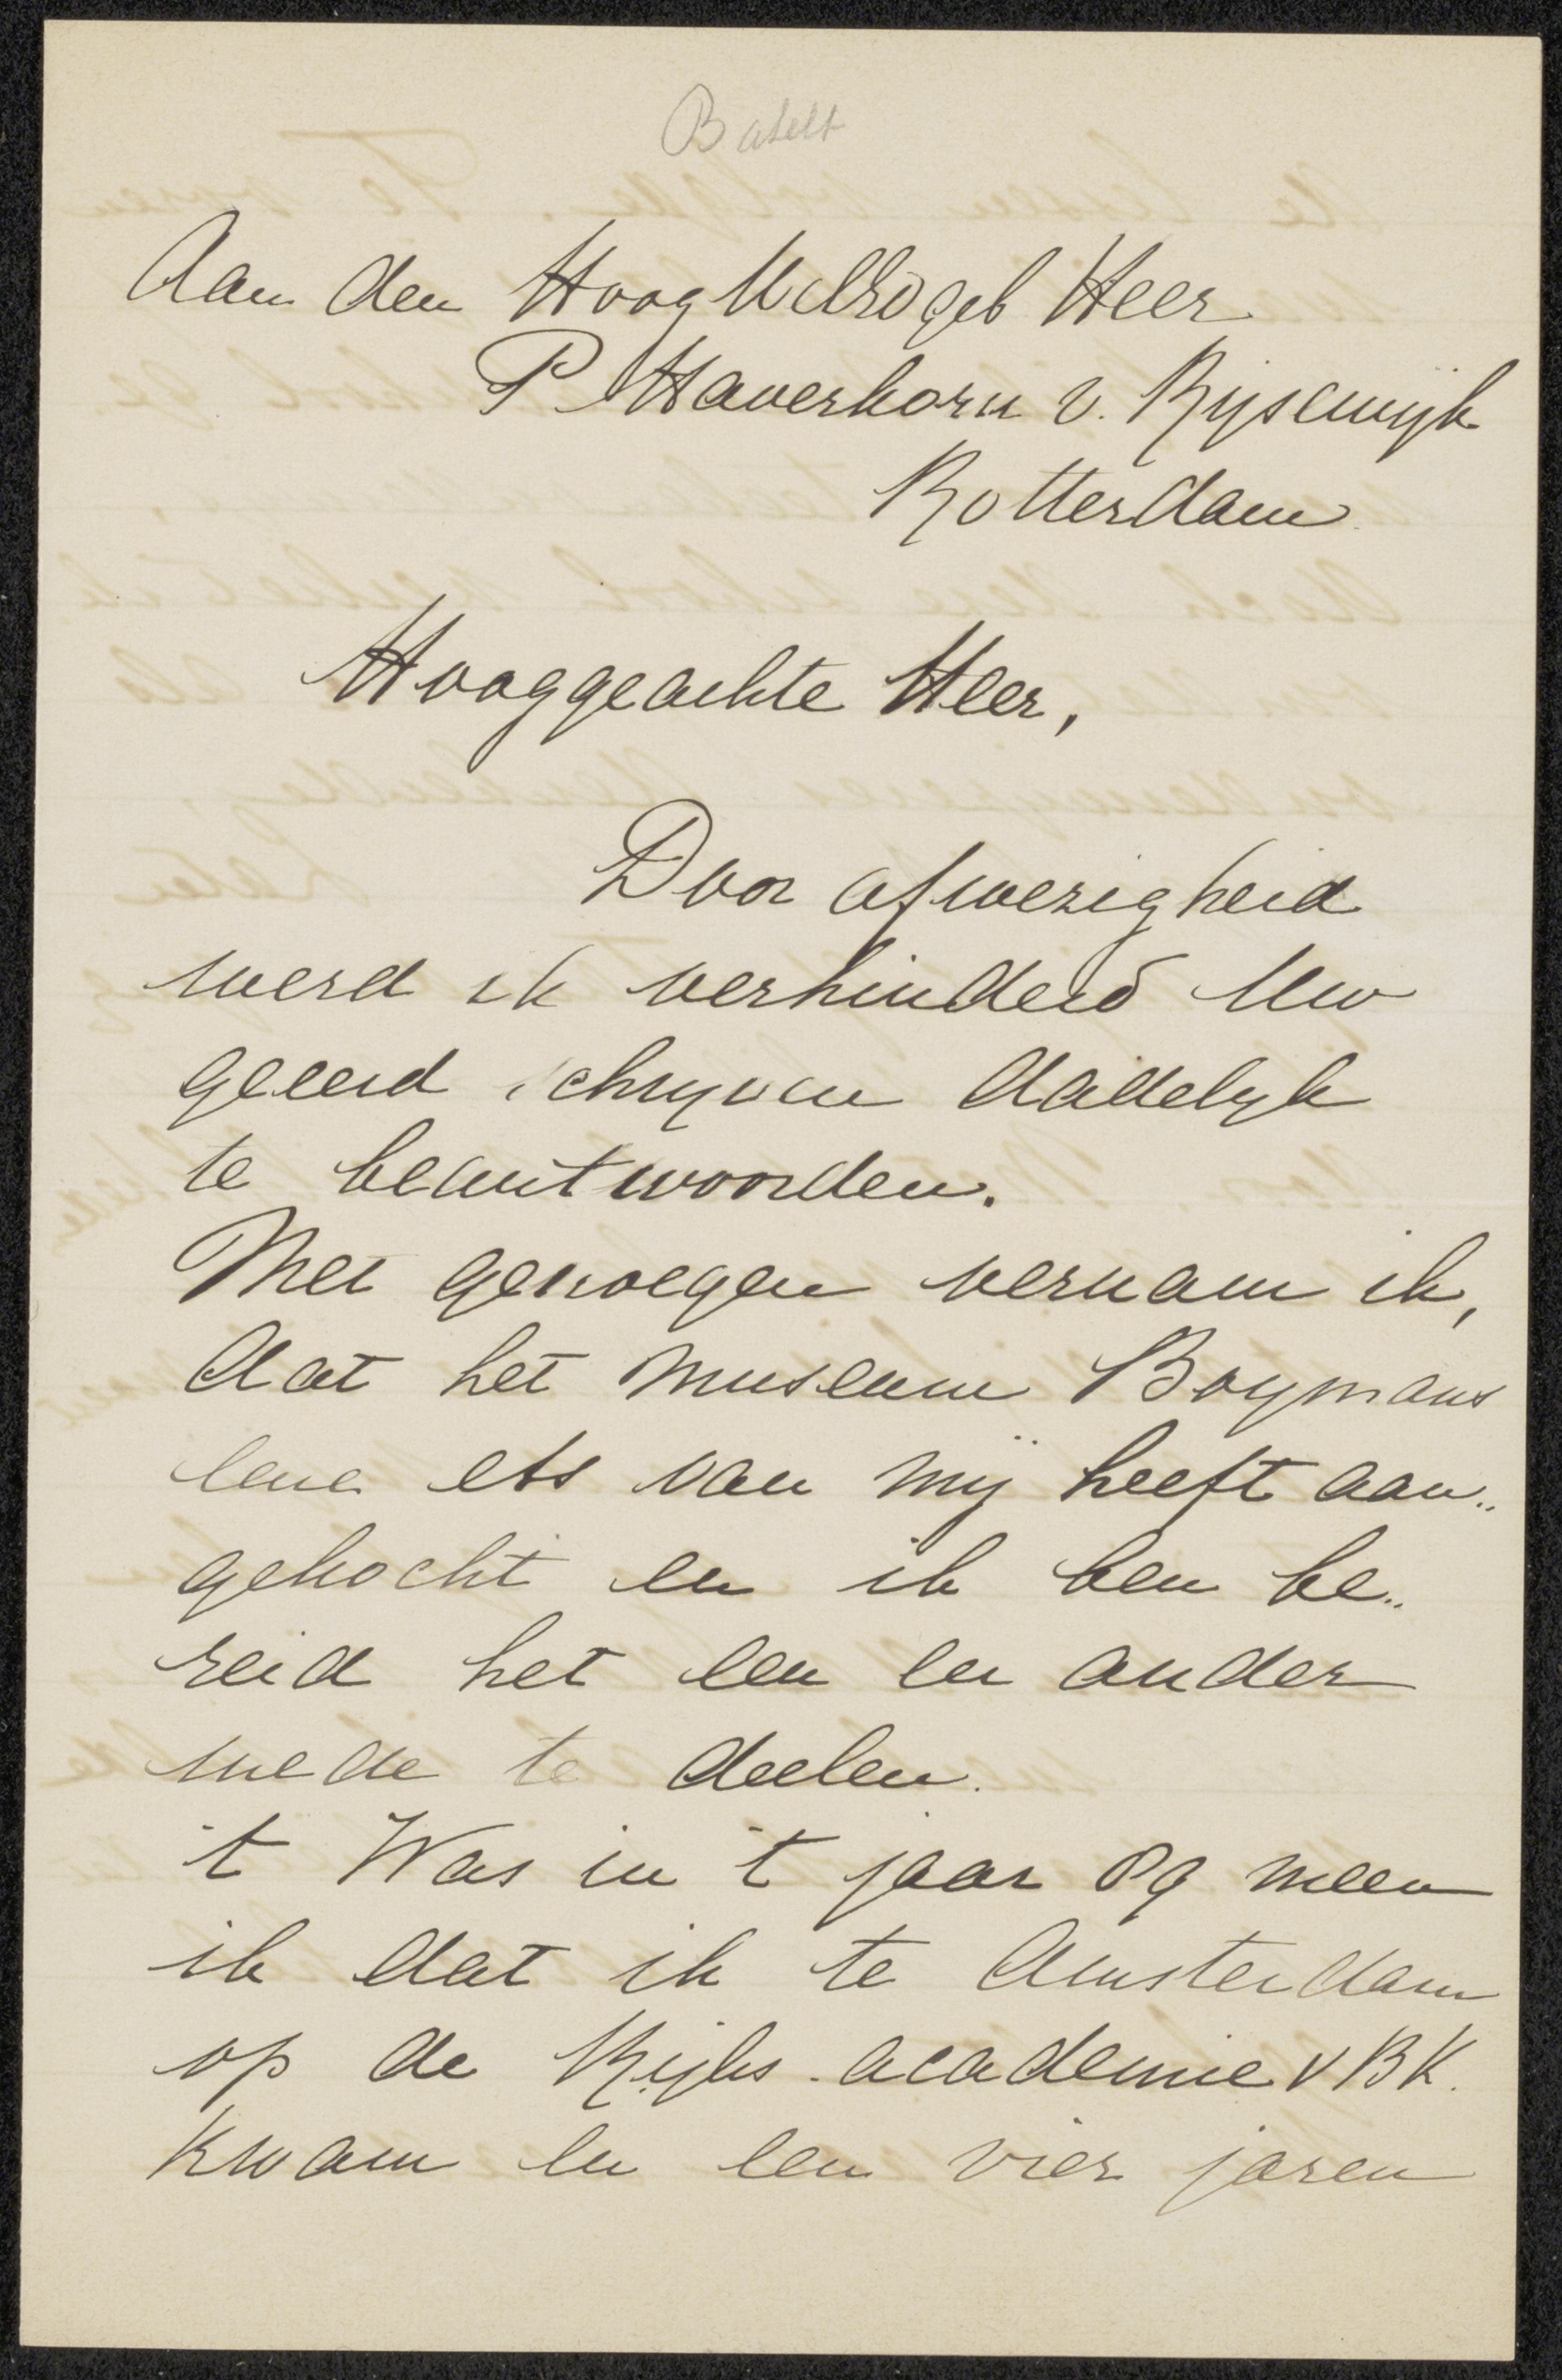 Aan den HoogWelEdgeb Heer
P Haverkorn v. Rijsewijk
Rotterdam
Hooggeachte Heer,
Door afwezigheid
werd ik verhinderd Uw
geeerd schryven dadelyk
te beantwoorden.
Met genoegen vernam ik,
dat het museum Boymans
eene ets van mij heeft aan..
gekocht en ik ben be..
reid het een en ander
mede te deelen.
't Was in 't jaar 89 meen
ik dat ik te Amsterdam
op de Rijks. academie v BK.
kwam en een vier jaren